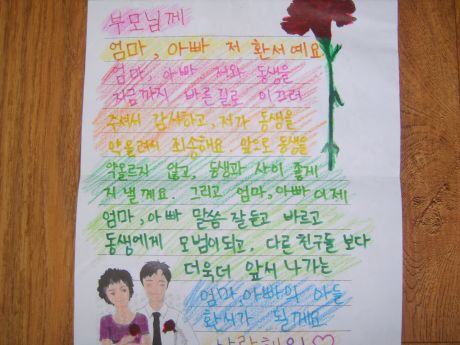 부모님께
엄마, 아빠 저 환서예요
엄마, 아빠 저와 동생을
지금까지 바른길로 이끄러
주셔서 감사하고, 저가 동생을
약올려서 죄송해요. 앞으로 동생을
약올르지 않고, 동생과 사이 좋게
지낼께요. 그리고 엄마, 아빠 이제
엄마, 아빠 말씀 잘듣고 바르고
동생에게 모범이되고, 다른 친구들 보다
더욱더 앞서 나가는
엄마, 아빠의 아들
환서가 될께요
사랑해요♡